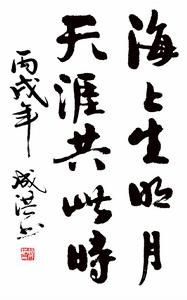 海上生明月
天涯共此時
丙戌年
成洪书